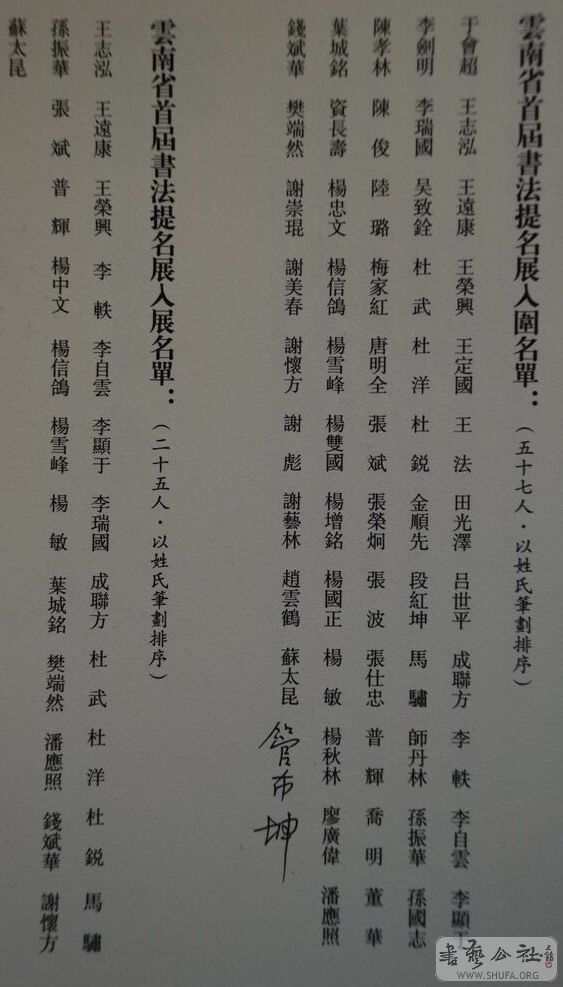 雲南省首屆書法提名展入圍名單：（五十七人．以姓氏筆劃排序）
于會超 王志泓 王遠康 王榮興 王定國 王法 田光澤 吕世平 成聯方 李軼 李自雲 李顯于
李劍明 李瑞國 吴致銓 杜武 杜洋 杜銳 金順先 段紅坤 馬驌 師丹林 孫振華 孫國志
陳孝林 陳俊 陸璐 梅家紅 唐明全 張斌 張榮炯 張波 張仕忠 普輝 喬明 董華
葉城銘 資長壽 楊忠文 楊信鴿 楊雪峰 楊雙國 楊增銘 楊國正 楊敏 楊秋林 廖廣偉 潘應照
錢斌華 樊端然 謝崇琨 謝美春 謝懷方 謝彪 謝藝林 趙雲鶴 蘇太昆
雲南省首屆書法提名展入展名單：（二十五人．以姓氏筆劃排序）
王志泓 王遠康 王榮興 李軼 李自雲 李顯于 李瑞國 成聯方 杜武 杜洋 杜銳 馬驌
孫振華 張斌 普輝 楊中文 楊信鴿 楊雪峰 楊敏 葉城銘 樊端然 潘應照 錢斌華 謝懷方
蘇太昆
書藝公社
WWW.SHUFA.ORG